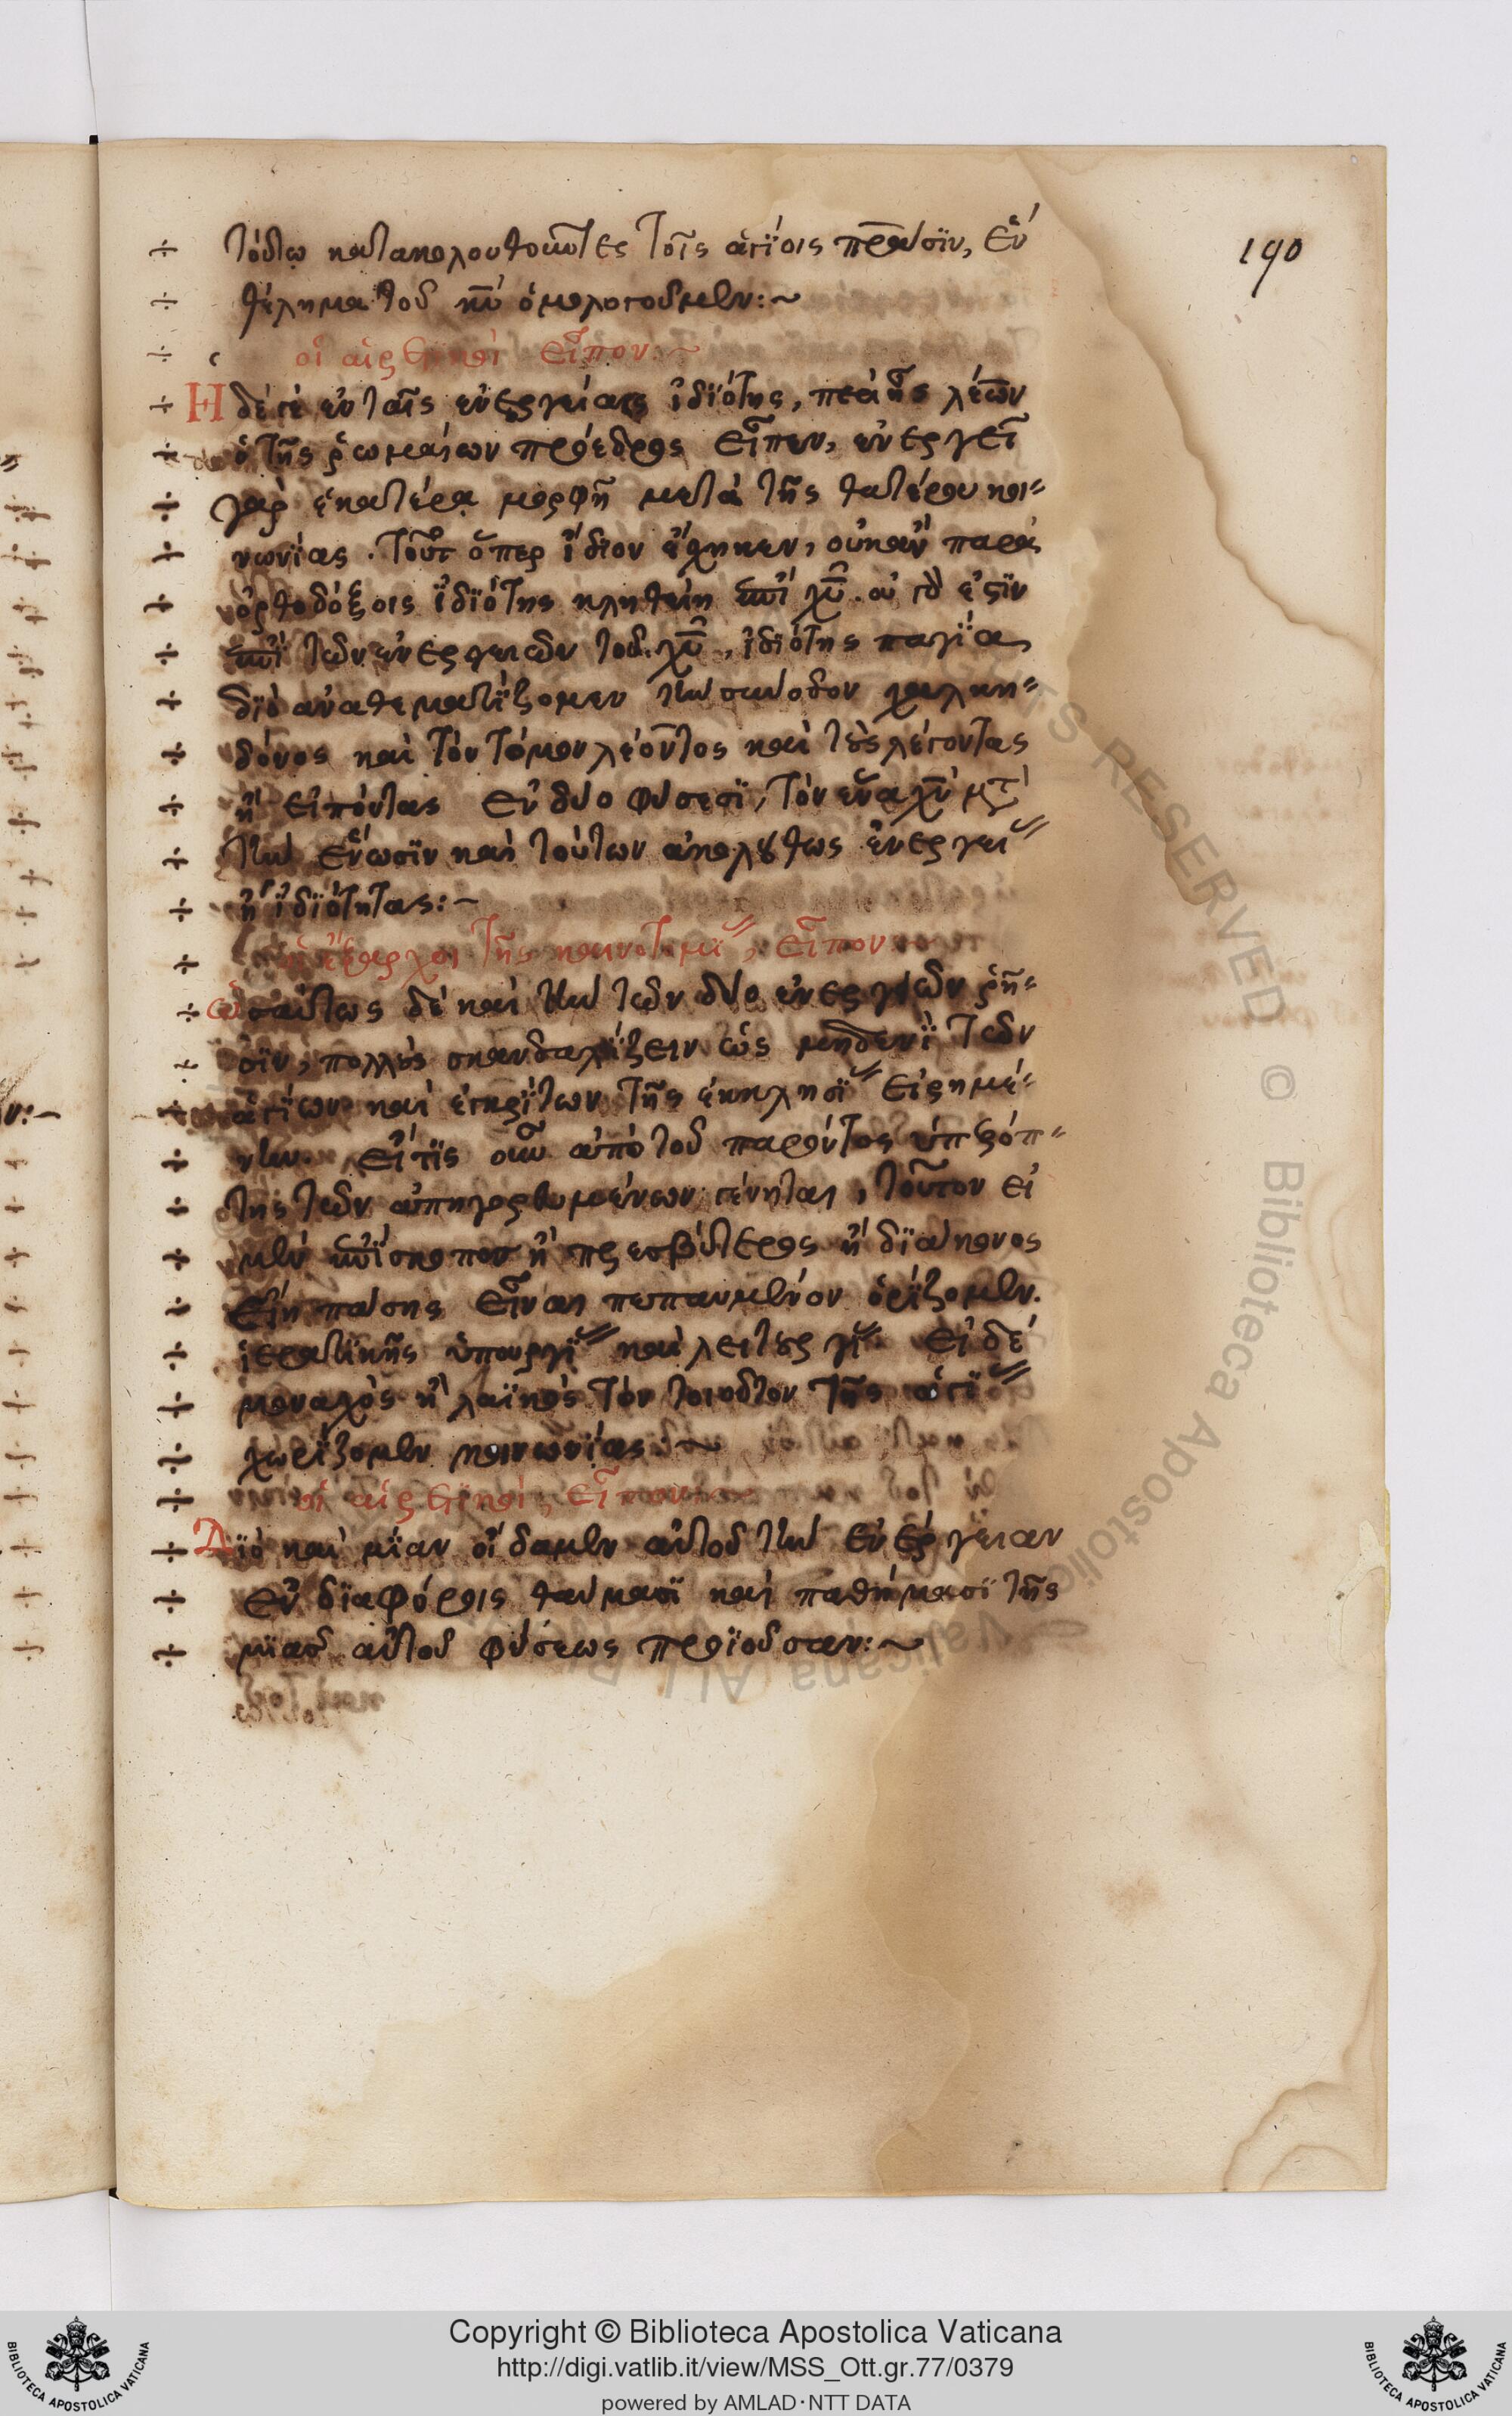 190
τούτω κατακολουθοῦντες τοῖς ἁγίοις πρασϊν, ἓν
θέλημα τοῦ χυ ὁμολογοῦμεν:~
οἱ αἱρετϊκοὶ εἶπον:~
Ἡ δέ γε ἐν ταῖς ἐνεργείαις ἰδϊότης, περὶ ἧς λέων
ὁ τῆς ῥωμαίων πρόεδρος εἶπεν, ἐνεργεῖ
γὰρ ἑκατέρα μορφῆ μετὰ τῆς θατέρου κοι-
νωνίας . τοῦτ ὅπερ ἴδϊον ἔσχηκεν, οὐκ ἂν παρὰ
ὀρθοδόξοις ἰδϊότης κληθείη ἐπὶ χυ. οὐ γὰρ ἐστϊν
ἐπὶ τῶν ἐνεργειῶν τοῦ χυ, ἰδϊότης παγϊα
δϊὸ ἀναθεματίζομεν τὴν σύνοδον χαλκη-
δόνος καὶ τὸν τόμον λέοντος καὶ τοὺς λέγοντας
ἢ εἰπόντας ἐν δύο φύσεσϊ, τὸν ἕνα χν μετὰ
τὴν ἕνωσϊν καὶ τούτων ἀκολούθως ἐνεργεί
ἢ ἰδϊότητας:~
οἱ ἔξαρχοι τῆς καινοτομϊ, εἶπον
ὡσαύτως δὲ καὶ τὴν τῶν δύο ἐνεργειῶν ῥῆ-
σϊν, πολλοὺς σκανδαλίζειν ὡς μηδενὶ τῶν
ἁγίων καὶ ἐγκρίτων τῆς ἐκκλησϊ εἰρημέ-
νην. εἴ τϊς οὖν ἀπὸ τοῦ παρόντος ὑπερόπ-
της τῶν ἀπηγορευμένων γένηται, τοῦτον εἰ
μὲν ἐπίσκοπον ἢ πρεσβύτερος ἢ δϊάκονος
εἴη πάσης εἶναι πεπαυμένον ὁρίζομεν.
ἱερατϊκῆς ὑπουργϊ καὶ λειτουργϊ εἰ δὲ
μοναχὸς ἢ λαϊκὸς τὸν τοιοῦτον τῆς ἁγϊ
χωρίζομεν κοινωνίας:~
οἱ αἱρετϊκοὶ, εἶπον
Δϊὸ καὶ μίαν οἴδαμεν αὐτοῦ τὴν ἐνέργειαν
ἐν δϊαφόροις θαύμασϊ καὶ παθήμασϊ τῆς
μϊᾶς αὐτοῦ φύσεως προϊοῦσαν:~
© Biblioteca Apostolica Vaticana ALL RIGHTS RESERVED
Copyright © Biblioteca Apostolica Vaticana
http://digi.vatlib.it/view/MSS_Ott.gr.77/0379
powered by AMLAD·NTT DATA
BIBLIOTECA APOSTOLICA VATICANA
BIBLIOTECA APOSTOLICA VATICANA